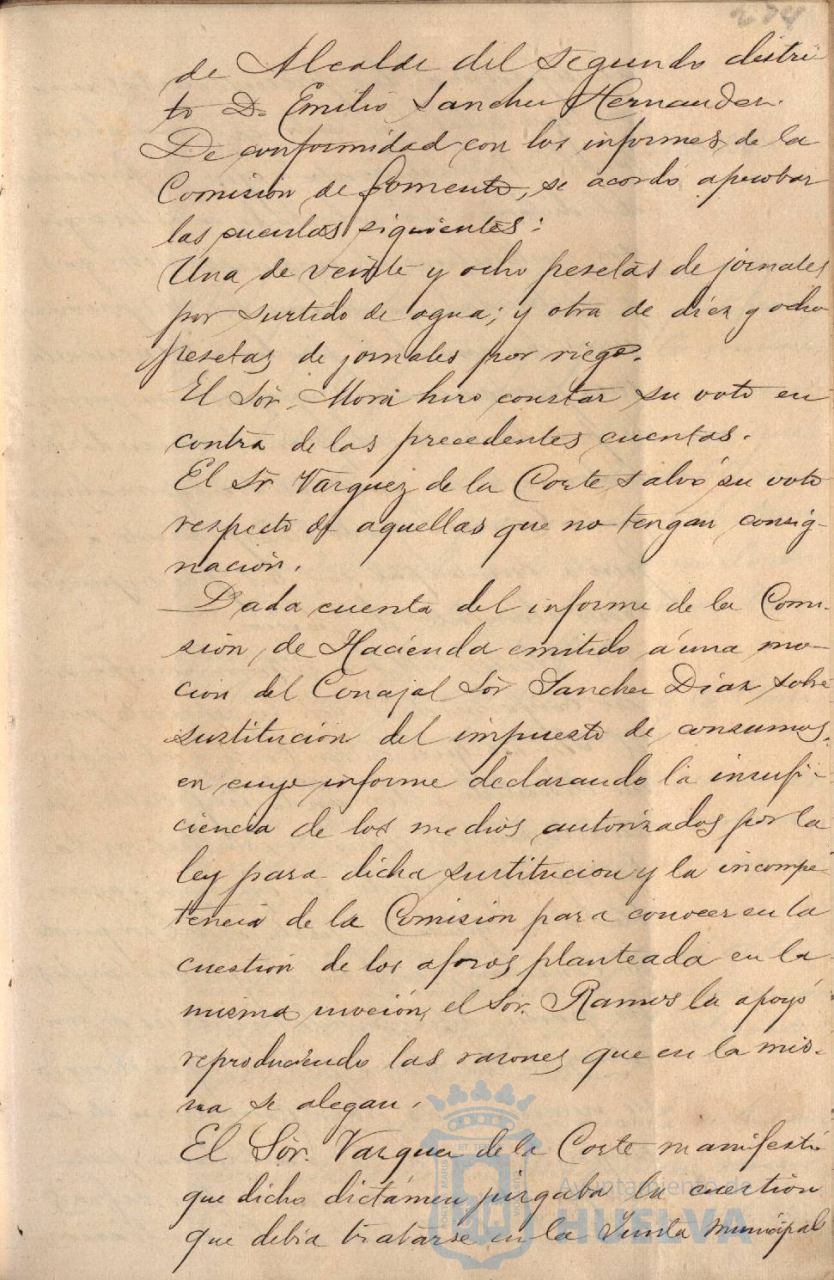 274
de Alcalde del segundo distri-
to Dn Emilio Sanchez Hernandez.
De conformidad con los informes de la
Comisión de Fomento, se acordó aprobar
las cuentas siguientes:
Una de veinte y ocho pesetas de jornales
por surtido de agua; y otra de diez y ocho
pesetas de jornales por riego.
El Sór. Mora hizo constar su voto en
contra de las precedentes cuentas.
El Sr Vazquez de la Corte salvó su voto
respecto de aquellas que no tengan consig-
nación.
Dada cuenta del informe de la Comi-
sión de Hacienda emitido á una mo-
ción del Concejal Sór Sanchez Diaz sobre
sustitución del impuesto de consumos,
en cuyo informe declarando la insufi-
ciencia de los medios autorizados por la
ley para dicha sustitucion y la incompe-
tencia de la Comisión para conocer en la
cuestión de los aforos planteada en la
misma moción, el Sór. Ramos la apoyó
reproduciendo las razones que en la mis-
ma se alegan.
El Sór. Vazquez de la Corte manifestó
que dicho dictámen juzgaba la cuestion
que debia tratarse en la Junta Municipal
Ayuntamiento de
HUELVA